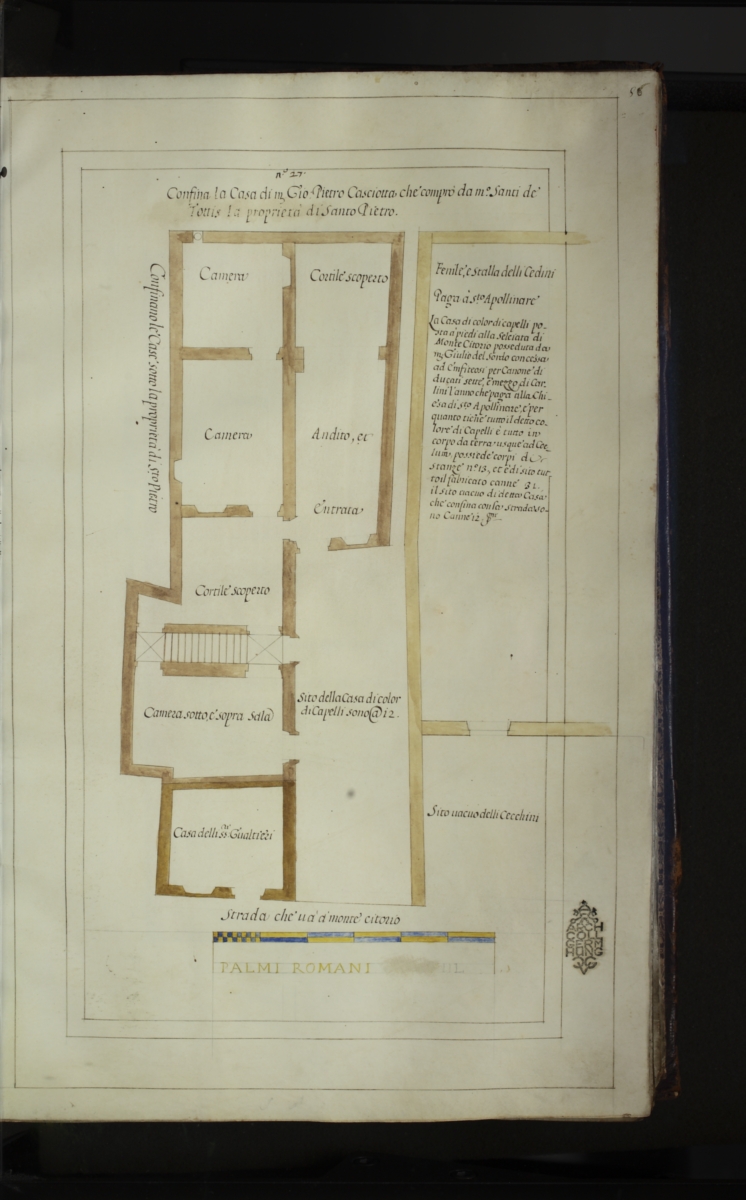 56
nº 27
Confina la Casa di m. Gio Pietro Casciotta, che comprò da mº Santi de
Tottis la proprietà di Santo Pietro.
Confinano le Case sotto la proprietà di Sto Pietro
Camera
Cortile scoperto
Camera
Andito, et
Entrata
Cortile scoperto
Camera sotto, e sopra Sala
Sito della Casa di color
di Capelli sono @ 12.
Casa delli Gualtieri
Fenile, e stalla delli Cedini
Paga à Sto Apollinare
La Casa di color di capelli po-
sta a piedi alla Selciata di
Monte Citorio posseduta da
m. Giulio del Sordo concessa
ad Emfiteosi per Canone di
ducati sette, e mezzo di Car-
lini l'anno che paga alla Chi-
esa di Sto Apollinare, e per
quanto tiene tutto il detto co-
lore di Capelli è tutto in
corpo da terra usque ad Coe-
lum, possiede corpi di
stanze nº 13, et è di sito tut-
to il fabricato canne 31.
il sito vacuo di detta Casa
che confina con la strada so-
no Canne 12
Sito vacuo delli Cecchini
Strada che và à monte citorio
PALMI ROMANI